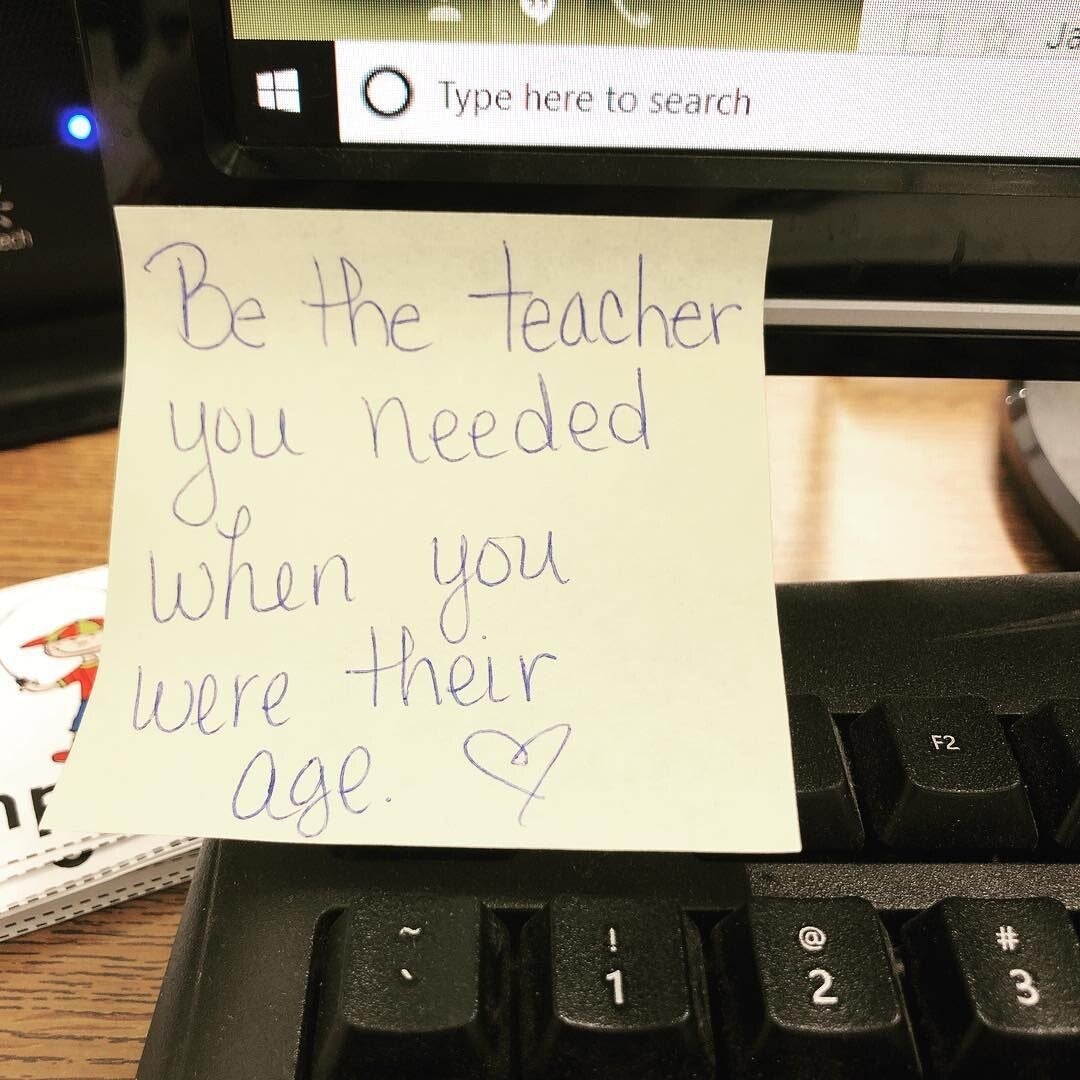 Type here to search
Be the teacher
you needed
when you
were their
age. ♡
F2
~ ! @ #
` 1 2 3